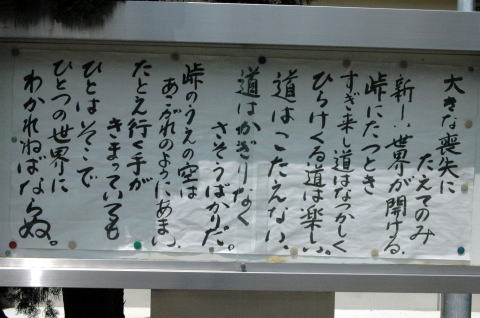 大きな喪失に
たえてのみ
新しい世界が開ける。
峠にたつとき
すぎ来し道はなつかしく
ひらけくる道は楽しい。
道はこたえない、
道はかぎりなく
さそうばかりだ。
峠のうえの空は
あこがれのようにあまい。
たとえ行く手が
きまっていても
ひとはそこで
ひとつの世界に
わかれねばならぬ。